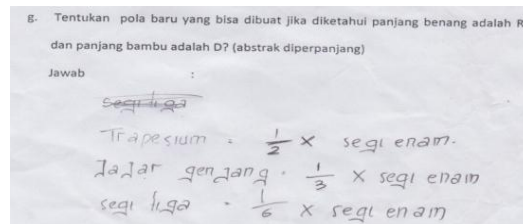 g. Tentukan pola baru yang bisa dibuat jika diketahui panjang benang adalah R
dan panjang bambu adalah D? (abstrak diperpanjang)
Jawab :
segi tiga
Trapesium = 1/2 × segi enam.
Jajar genjang = 1/3 × segi enam
segi tiga = 1/6 × segi enam